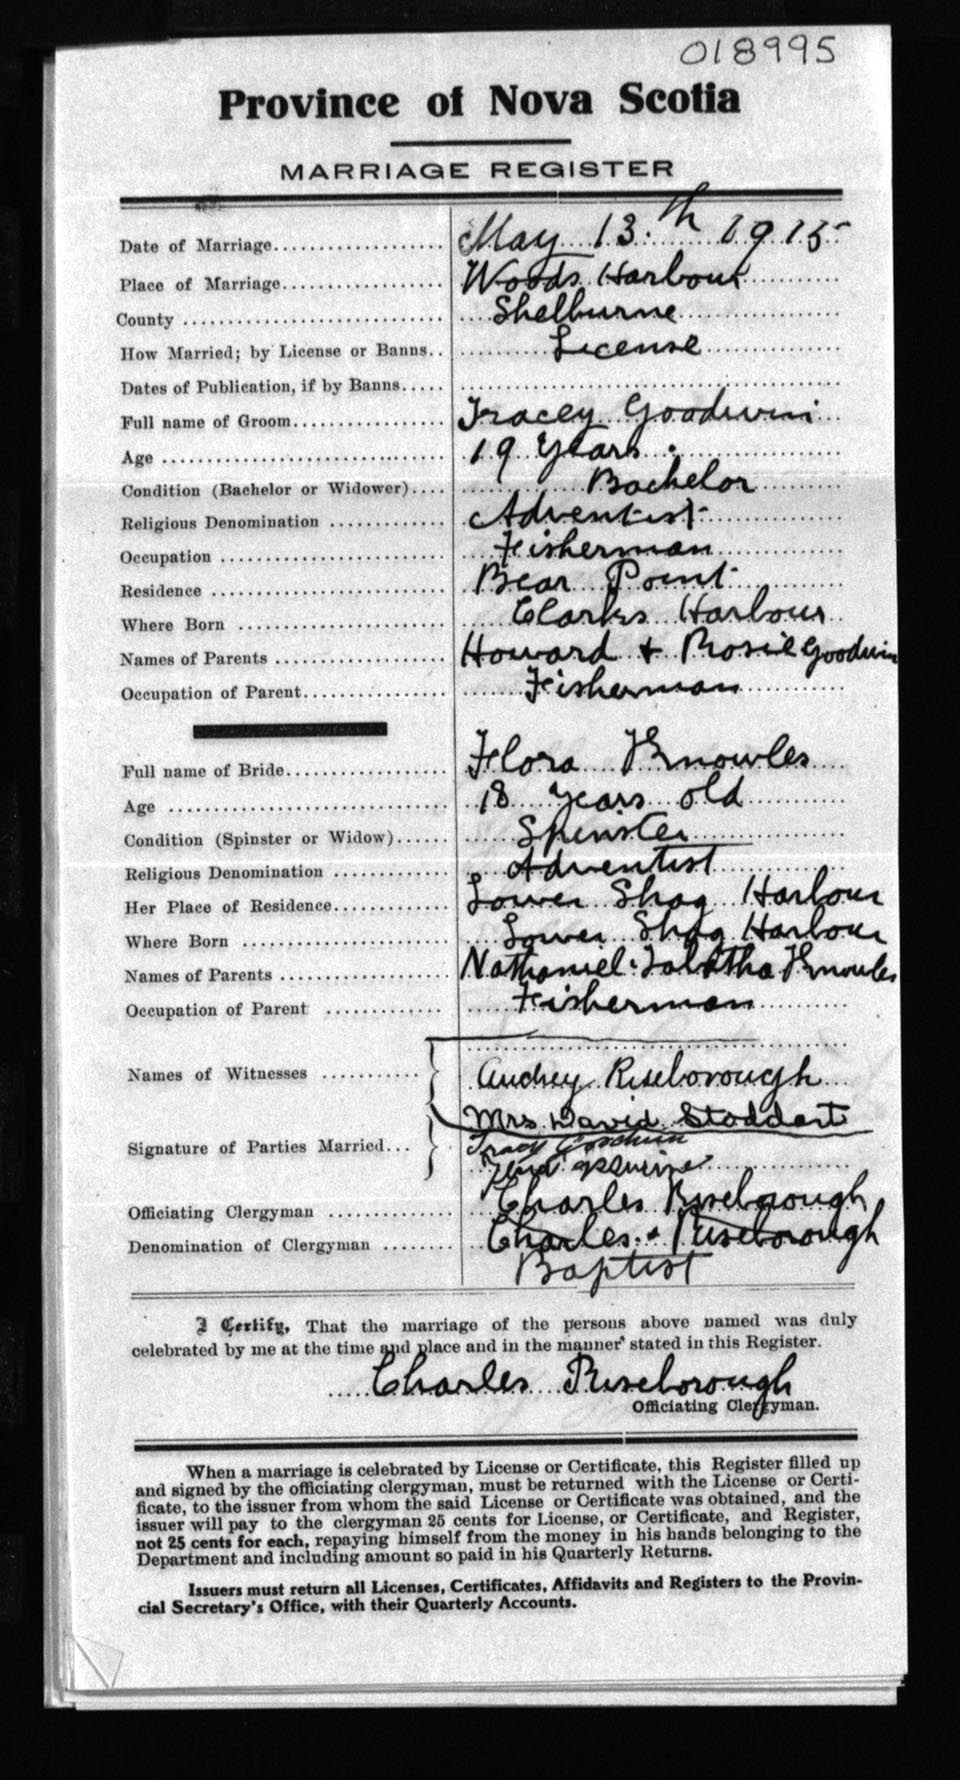 018995
Province of Nova Scotia
MARRIAGE REGISTER
Date of Marriage.................... May 13.th 1915
Place of Marriage................... Woods Harbour
County .............................. Shelburne
How Married; by License or Banns.. License
Dates of Publication, if by Banns.....
Full name of Groom.................. Tracey Goodwin
Age ................................. 19 Years.
Condition (Bachelor or Widower).... Bachelor
Religious Denomination ............. Adventist
Occupation .......................... Fisherman
Residence ........................... Bear Point
Where Born ........................ Clarks Harbour
Names of Parents ................... Howard + Rosie Goodwin
Occupation of Parent................. Fisherman
Full name of Bride................... Flora Knowles
Age ................................. 18 Years old
Condition (Spinster or Widow)...... Spinster
Religious Denomination ............. Adventist
Her Place of Residence.............. Lower Shag Harbour
Where Born ........................ Lower Shag Harbour
Names of Parents ................... Nathaniel Tabitha Knowles
Occupation of Parent .............. Fisherman
Names of Witnesses ........... Audrey Riseborough
Mrs. David Stoddart
Signature of Parties Married... Tracy Goodwin
Officiating Clergyman ............. Charles Riseborough
Denomination of Clergyman ........ Charles Riseborough
Baptist
I Certify, That the marriage of the persons above named was duly
celebrated by me at the time and place and in the manner stated in this Register.
Charles Riseborough
Officiating Clergyman.
When a marriage is celebrated by License or Certificate, this Register filled up
and signed by the officiating clergyman, must be returned with the License or Certi-
ficate, to the issuer from whom the said License or Certificate was obtained, and the
issuer will pay to the clergyman 25 cents for License, or Certificate, and Register,
not 25 cents for each, repaying himself from the money in his hands belonging to the
Department and including amount so paid in his Quarterly Returns.
Issuers must return all Licenses, Certificates, Affidavits and Registers to the Provin-
cial Secretary's Office, with their Quarterly Accounts.